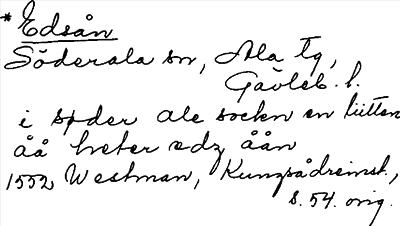 *Edsån
Söderala sn, Ala tg,
Gävleb. l.
i søder ale sockn en liitten
åå heter edz åån
1552 Westman, Kungsådreinst.,
s. 54. orig.